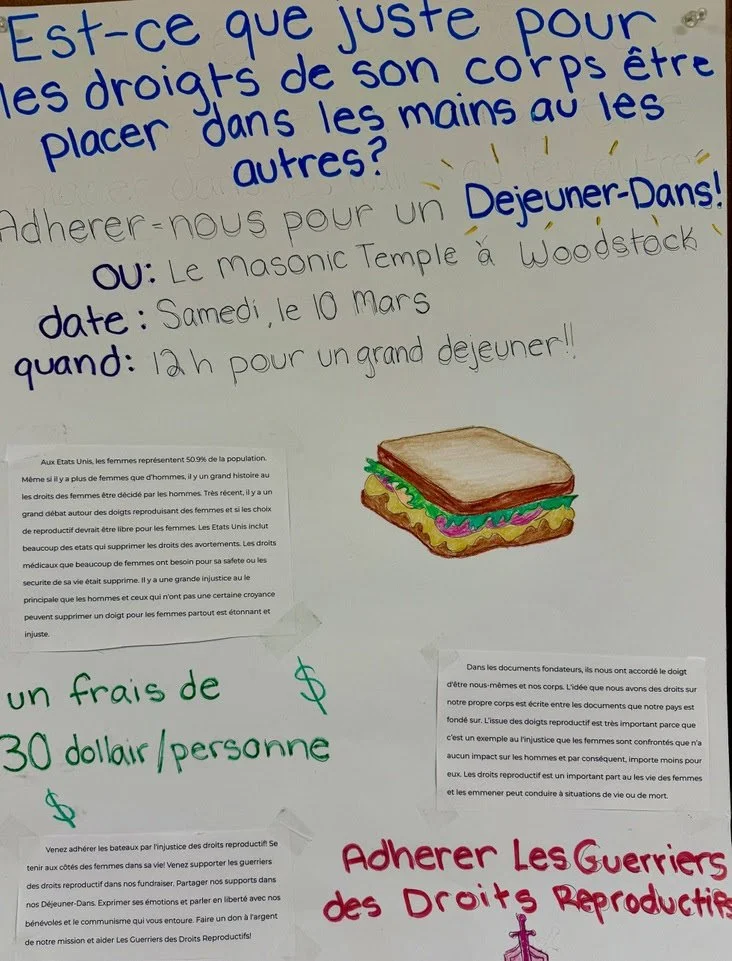 Est-ce que juste pour
les droigts de son corps être
placer dans les mains au les
autres?
Adherer-nous pour un Dejeuner-Dans!
OU: Le Masonic Temple à Woodstock
date: Samedi, le 10 Mars
quand: 12h pour un grand dejeuner!!
Aux Etats Unis, les femmes représentent 50.9% de la population.
Même si il y a plus de femmes que d'hommes, il y un grand histoire au
les droits des femmes être décidé par les hommes. Très récent, il y a un
grand débat autour des doigts reproduisant des femmes et si les choix
de reproductif devrait être libre pour les femmes. Les Etats Unis inclut
beaucoup des etats qui supprimer les droits des avortements. Les droits
médicaux que beaucoup de femmes ont besoin pour sa safete ou les
securite de sa vie était supprime. Il y a une grande injustice au le
principale que les hommes et ceux qui n'ont pas une certaine croyance
peuvent supprimer un doigt pour les femmes partout est étonnant et
injuste.
un frais de $
30 dollair/personne
$
Dans les documents fondateurs, ils nous ont accordé le doigt
d'être nous-mêmes et nos corps. L'idée que nous avons des droits sur
notre propre corps est écrite entre les documents que notre pays est
fondé sur. L'issue des doigts reproductif est très important parce que
c'est un exemple au l'injustice que les femmes sont confrontés que n'a
aucun impact sur les hommes et par conséquent, importe moins pour
eux. Les droits reproductif est un important part au les vie des femmes
et les emmener peut conduire à situations de vie ou de mort.
Venez adhérer les bateaux par l'injustice des droits reproductif! Se
tenir aux côtés des femmes dans sa vie! Venez supporter les guerriers
des droits reproductif dans nos fundraiser. Partager nos supports dans
nos Déjeuner-Dans. Exprimer ses émotions et parler en liberté avec nos
bénévoles et le communisme qui vous entoure. Faire un don à l'argent
de notre mission et aider Les Guerriers des Droits Reproductifs!
Adherer Les Guerriers
des Droits Reproductifs